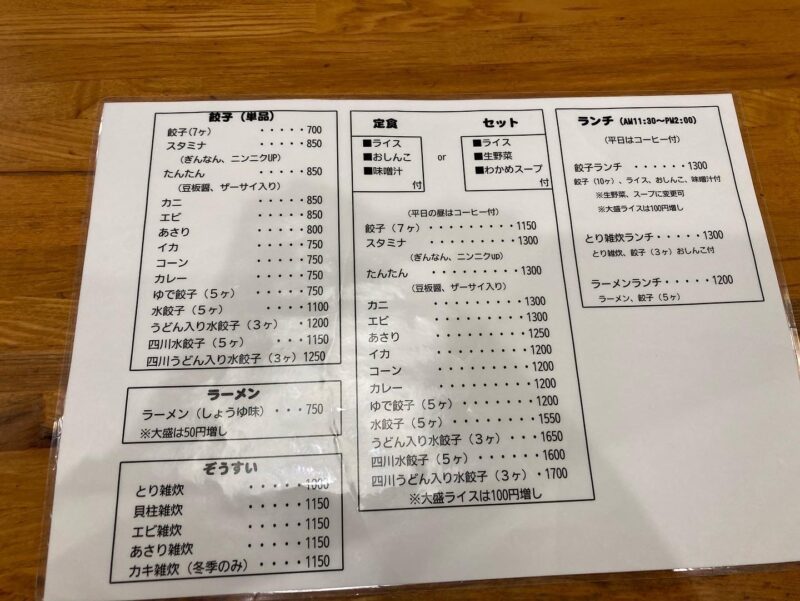 餃子（単品）
餃子(7ヶ) ・・・・・700
スタミナ ・・・・・850
（ぎんなん、ニンニクUP）
たんたん ・・・・・850
（豆板醤、ザーサイ入り）
カニ ・・・・・850
エビ ・・・・・850
あさり ・・・・・800
イカ ・・・・・750
コーン ・・・・・750
カレー ・・・・・750
ゆで餃子（5ヶ）・・・・・750
水餃子（5ヶ）・・・・・1100
うどん入り水餃子（3ヶ）・1200
四川水餃子（5ヶ）・・・・1150
四川うどん入り水餃子（3ヶ）1250
ラーメン
ラーメン（しょうゆ味）・・・750
※大盛は50円増し
ぞうすい
とり雑炊 ・・・・・1000
貝柱雑炊 ・・・・・1150
エビ雑炊 ・・・・・1150
あさり雑炊 ・・・・・1150
カキ雑炊（冬季のみ）・・・・1150
定食
■ライス
■おしんこ
■味噌汁
付
or
セット
■ライス
■生野菜
■わかめスープ
付
（平日の昼はコーヒー付）
餃子（7ヶ）・・・・・・・・1150
スタミナ ・・・・・・・・1300
（ぎんなん、ニンニクup）
たんたん ・・・・・・・・1300
（豆板醤、ザーサイ入り）
カニ ・・・・・・・・1300
エビ ・・・・・・・・1300
あさり ・・・・・・・・1250
イカ ・・・・・・・・1200
コーン ・・・・・・・・1200
カレー ・・・・・・・・1200
ゆで餃子（5ヶ）・・・・・・・1200
水餃子（5ヶ）・・・・・・・1550
うどん入り水餃子（3ヶ）・・・1650
四川水餃子（5ヶ）・・・・・1600
四川うどん入り水餃子（3ヶ）・1700
※大盛ライスは100円増し
ランチ（AM11:30～PM2:00）
（平日はコーヒー付）
餃子ランチ ・・・・・・1300
餃子（10ヶ）、ライス、おしんこ、味噌汁付
※生野菜、スープに変更可
※大盛ライスは100円増し
とり雑炊ランチ・・・・・1300
とり雑炊、餃子（3ヶ）おしんこ付
ラーメンランチ・・・・・1200
ラーメン、餃子（5ヶ）